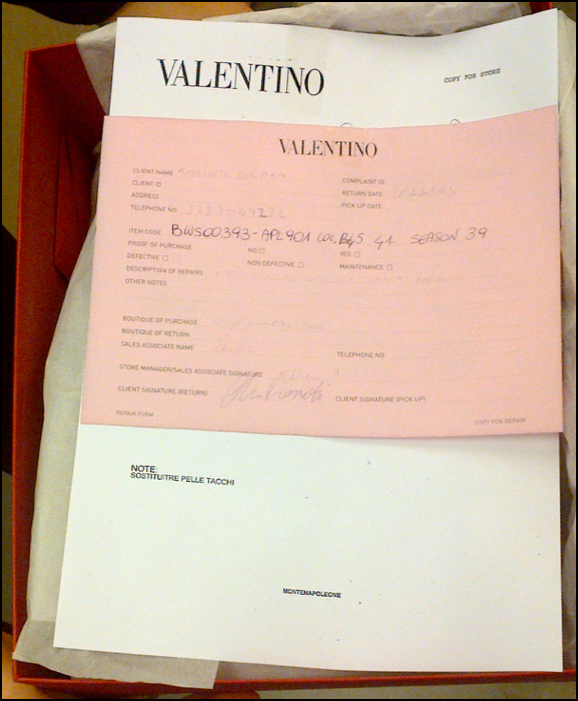 VALENTINO
COPY FOR STORE
VALENTINO
CLIENT NAME
COMPLAINT ID
CLIENT ID
RETURN DATE
ADDRESS
PICK UP DATE:
TELEPHONE NO
ITEM CODE: BWS00393-APL901 COL. B45 41 SEASON 39
PROOF OF PURCHASE NO ☐ YES ☐
DEFECTIVE ☐ NON DEFECTIVE ☐ MAINTENANCE ☐
DESCRIPTION OF REPAIRS
OTHER NOTES
BOUTIQUE OF PURCHASE
BOUTIQUE OF RETURN
SALES ASSOCIATE NAME
TELEPHONE NO
STORE MANAGER/SALES ASSOCIATE SIGNATURE
CLIENT SIGNATURE (RETURN)
CLIENT SIGNATURE (PICK UP)
REPAIR FORM
COPY FOR REPAIR
NOTE:
SOSTITUITRE PELLE TACCHI
MONTENAPOLEONE